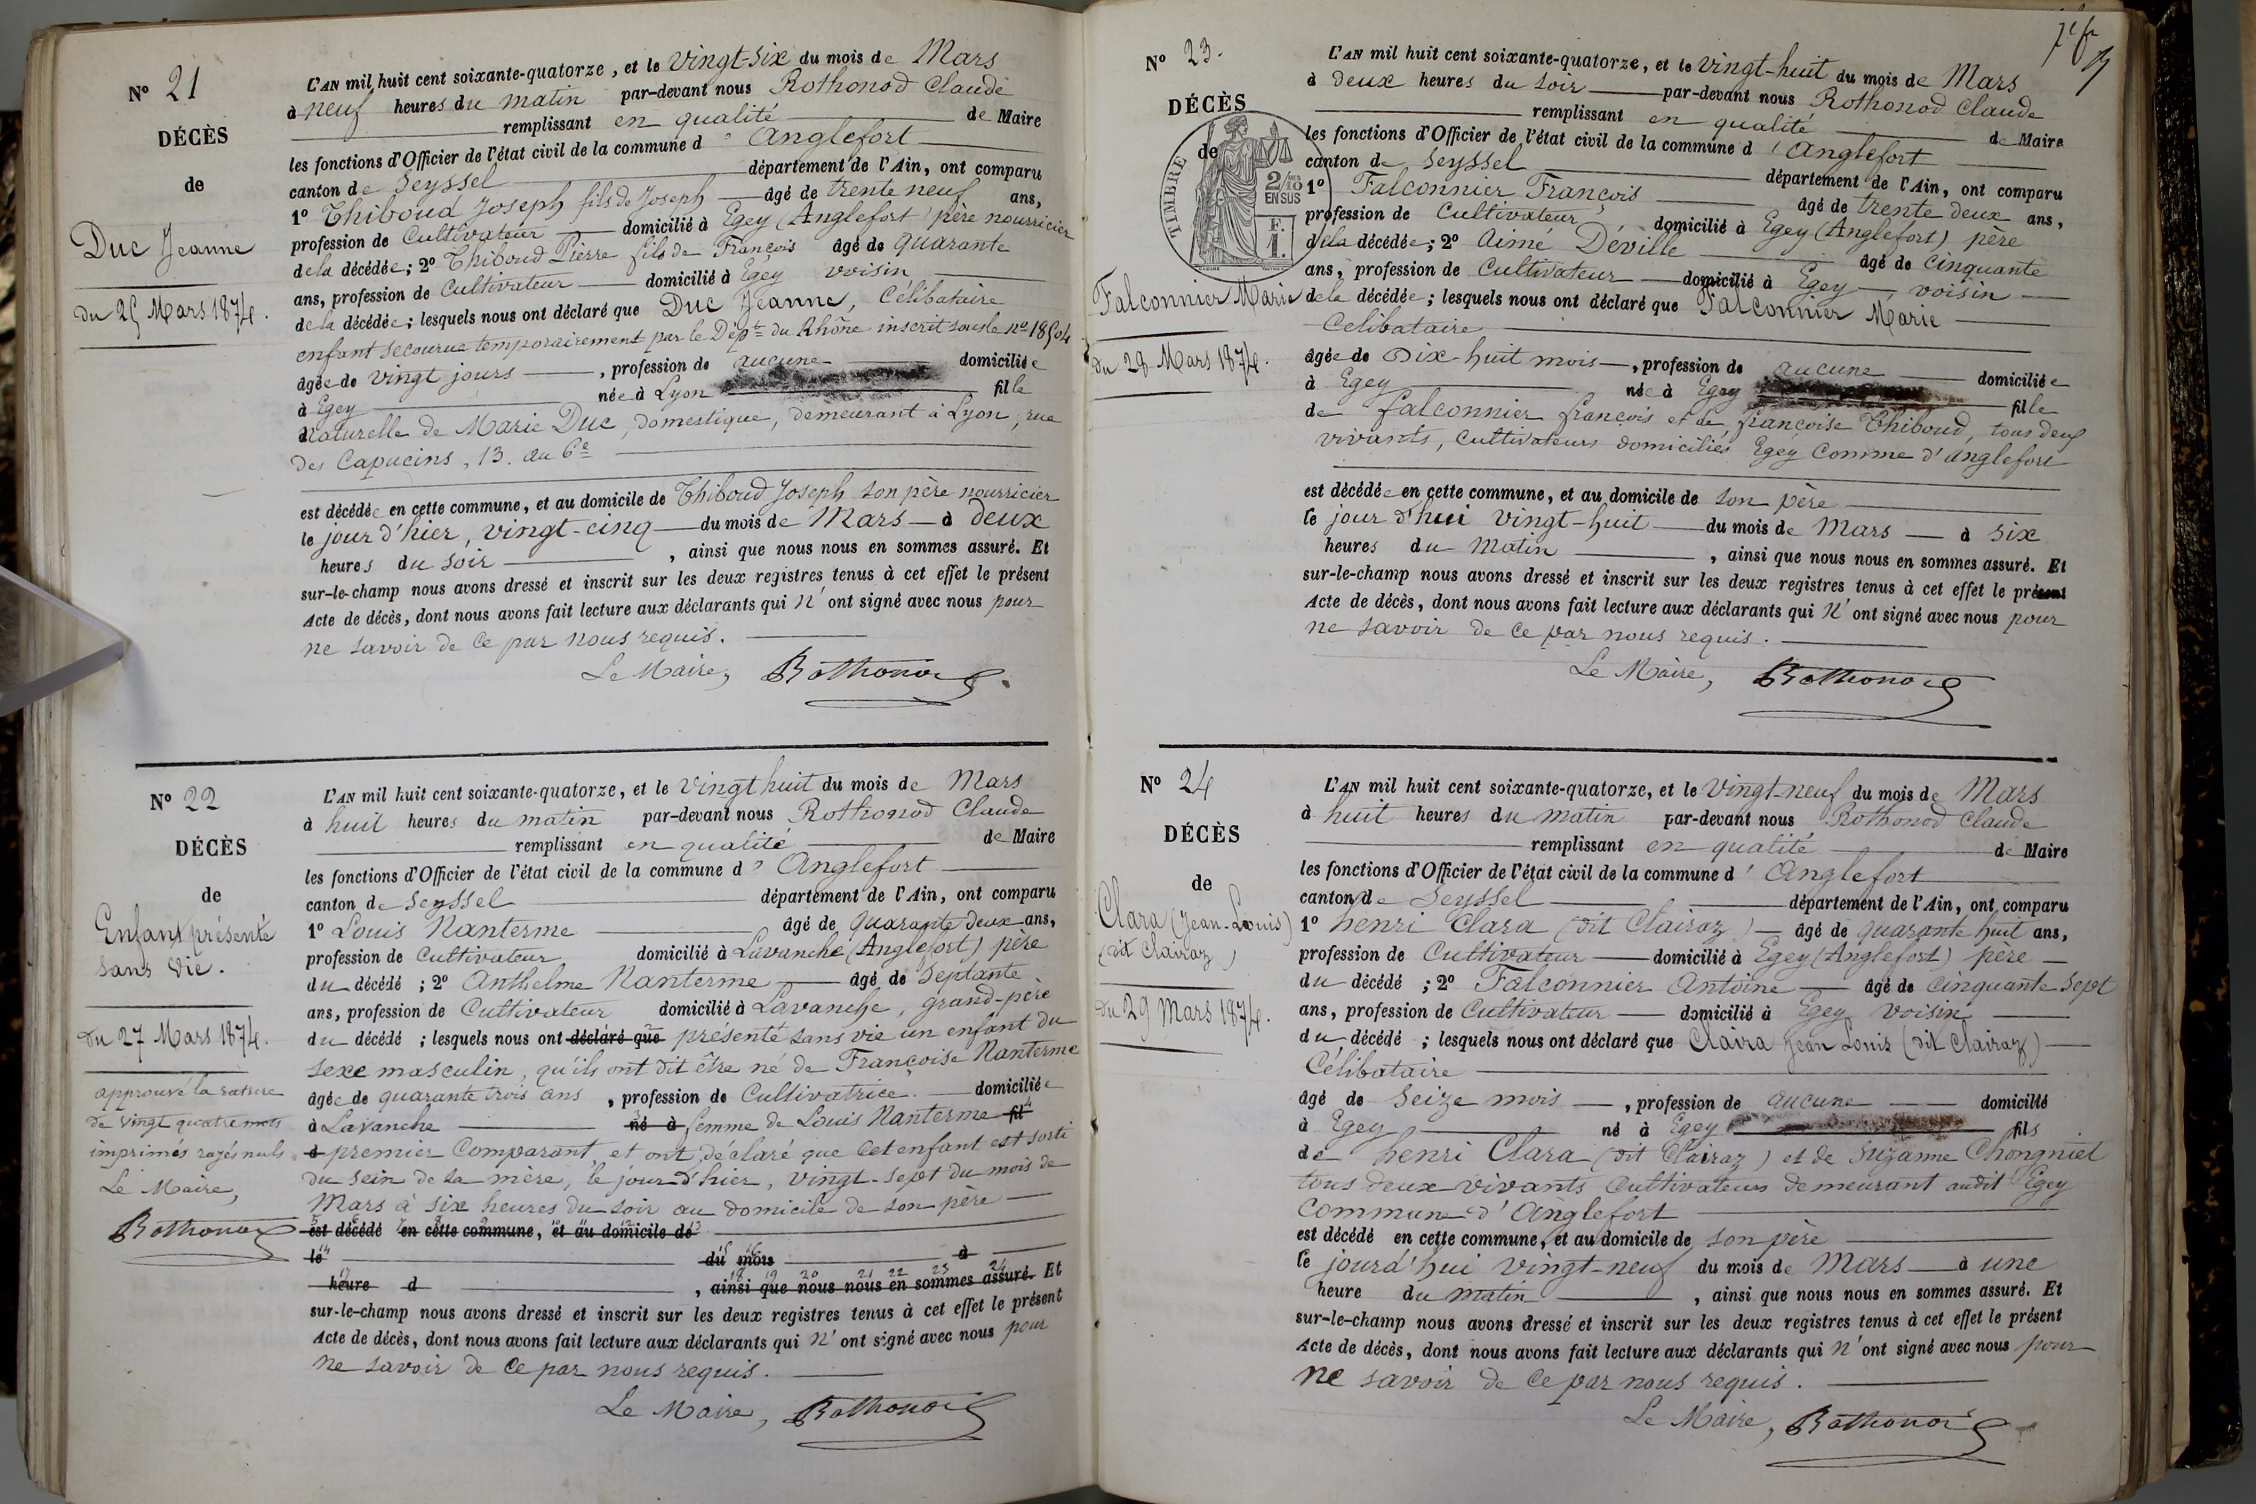 N° 21
DÉCÈS
de
Duc Jeanne
du 25 Mars 1874.
L'AN mil huit cent soixante-quatorze, et le vingt-six du mois de Mars
à neuf heures du matin par-devant nous Rothonod Claude
remplissant en qualité de Maire
les fonctions d'Officier de l'état civil de la commune d'Anglefort
canton de Seyssel département de l'Ain, ont comparu
1° Thiboud Joseph fils de Joseph âgé de trente neuf ans,
profession de Cultivateur domicilié à Egey (Anglefort) père nourricier
de la décédée; 2° Thiboud Pierre fils de François âgé de quarante
ans, profession de Cultivateur domicilié à Egey voisin
de la décédée; lesquels nous ont déclaré que Duc Jeanne, Célibataire
enfant secourue temporairement par le Dépt du Rhône inscrit sous le no 18504
âgée de vingt jours, profession de aucune domiciliée
à Egey née à Lyon fille
naturelle de Marie Duc, domestique, demeurant à Lyon, rue
des Capucins, 13. au 6e
est décédée en cette commune, et au domicile de Thiboud Joseph son père nourricier
le jour d'hier, vingt-cinq du mois de Mars à deux
heures du soir, ainsi que nous nous en sommes assuré. Et
sur-le-champ nous avons dressé et inscrit sur les deux registres tenus à cet effet le présent
Acte de décès, dont nous avons fait lecture aux déclarants qui n'ont signé avec nous pour
ne savoir de ce par nous requis.
Le Maire, Rothonod
N° 22
DÉCÈS
de
Enfant présenté
sans vie.
du 27 Mars 1874.
approuvé la rature
de vingt quatre mots
imprimés rayés nuls
Le Maire,
Rothonod
L'AN mil huit cent soixante-quatorze, et le vingt huit du mois de Mars
à huit heures du matin par-devant nous Rothonod Claude
remplissant en qualité de Maire
les fonctions d'Officier de l'état civil de la commune d'Anglefort
canton de Seyssel département de l'Ain, ont comparu
1° Louis Nanterme âgé de quarante deux ans,
profession de Cultivateur domicilié à Lavanche (Anglefort) père
du décédé; 2° Anthelme Nanterme âgé de septante
ans, profession de Cultivateur domicilié à Lavanche, grand-père
du décédé; lesquels nous ont déclaré que présenté sans vie un enfant du
sexe masculin, qu'ils ont dit être né de Françoise Nanterme
âgée de quarante trois ans, profession de Cultivatrice. domiciliée
à Lavanche né à femme de Louis Nanterme fil
d premier Comparant, et ont déclaré que cet enfant est sorti
du sein de sa mère, le jour d'hier, vingt-sept du mois de
Mars à six heures du soir au domicile de son père
est décédé en cette commune, et au domicile de
le du mois à
heure d, ainsi que nous nous en sommes assuré. Et
sur-le-champ nous avons dressé et inscrit sur les deux registres tenus à cet effet le présent
Acte de décès, dont nous avons fait lecture aux déclarants qui n'ont signé avec nous pour
ne savoir de ce par nous requis.
Le Maire, Rothonod
N° 23.
DÉCÈS
de
TIMBRE
2/10 EN SUS
F. 1.
Falconnier Marie
du 28 Mars 1874.
L'AN mil huit cent soixante-quatorze, et le vingt-huit du mois de Mars
à deux heures du soir par-devant nous Rothonod Claude
remplissant en qualité de Maire
les fonctions d'Officier de l'état civil de la commune d'Anglefort
canton de Seyssel département de l'Ain, ont comparu
1° Falconnier François âgé de trente deux ans,
profession de Cultivateur domicilié à Egey (Anglefort) père
de la décédée; 2° Aimé Déville âgé de cinquante
ans, profession de Cultivateur domicilié à Egey, voisin
de la décédée; lesquels nous ont déclaré que Falconnier Marie
Celibataire
âgée de Dix-huit mois, profession de aucune domiciliée
à Egey née à Egey fille
de falconnier françois et de françoise Thiboud, tous deux
vivants, Cultivateurs domiciliés Egey Comme d'anglefort
est décédée en cette commune, et au domicile de son père
le jour d'hui vingt-huit du mois de Mars à six
heures du matin, ainsi que nous nous en sommes assuré. Et
sur-le-champ nous avons dressé et inscrit sur les deux registres tenus à cet effet le présent
Acte de décès, dont nous avons fait lecture aux déclarants qui n'ont signé avec nous pour
ne savoir de ce par nous requis.
Le Maire, Rothonod
N° 24
DÉCÈS
de
Clara (Jean-Louis)
(dit Clairaz)
du 29 Mars 1874.
L'AN mil huit cent soixante-quatorze, et le vingt-neuf du mois de Mars
à huit heures du matin par-devant nous Rothonod Claude
remplissant en qualité de Maire
les fonctions d'Officier de l'état civil de la commune d'Anglefort
canton de Seyssel département de l'Ain, ont comparu
1° henri Clara (dit Clairaz) âgé de quarante huit ans,
profession de Cultivateur domicilié à Egey (Anglefort) père
du décédé; 2° Falconnier Antoine âgé de cinquante sept
ans, profession de Cultivateur domicilié à Egey voisin
du décédé; lesquels nous ont déclaré que Claira Jean Louis (dit Clairaz)
Célibataire
âgé de Seize mois, profession de aucune domicilié
à Egey né à Egey fils
de henri Clara (dit Clairaz) et de Suzanne Chongniet
tous deux vivants Cultivateurs demeurant audit Egey
Commune d'Anglefort
est décédé en cette commune, et au domicile de son père
le jourd'hui vingt-neuf du mois de Mars à une
heure du matin, ainsi que nous nous en sommes assuré. Et
sur-le-champ nous avons dressé et inscrit sur les deux registres tenus à cet effet le présent
Acte de décès, dont nous avons fait lecture aux déclarants qui n'ont signé avec nous pour
ne savoir de ce par nous requis.
Le Maire, Rothonod